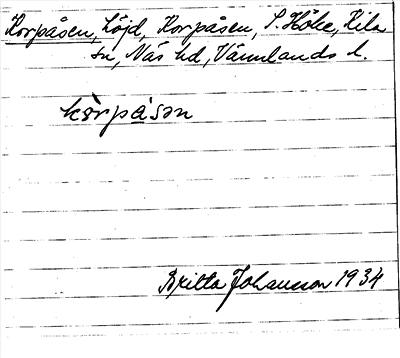 Korpåsen, höjd, Korpåsen, S. Höke, Kila
sn, Näs hd, Värmlands l.
kòrpåsən
Britta Johansson 1934